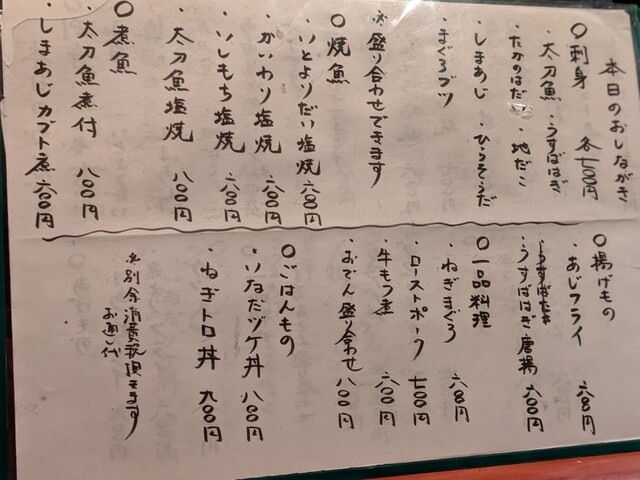 本日のおしながき
○刺身 各七〇〇円
・太刀魚・うすばはぎ
・たかのはだい・地だこ
・しまあじ・ひらそうだ
・まぐろブツ
※盛り合わせできます
○焼魚
・いとよりだい塩焼 六八〇円
・かいわり塩焼 六〇〇円
・いしもち塩焼 六〇〇円
・太刀魚塩焼 八〇〇円
○煮魚
・太刀魚煮付 八〇〇円
・しまあじカブト煮 六〇〇円
○揚げもの
・あじフライ 六八〇円
・うすばはぎ唐揚 六〇〇円
○一品料理
・ねぎまぐろ 六八〇円
・ローストポーク 七〇〇円
・牛もつ煮 六〇〇円
・おでん盛り合わせ 八〇〇円
○ごはんもの
・いなだヅケ丼 八〇〇円
・ねぎトロ丼 九〇〇円
※別途消費税頂きます
お通し代